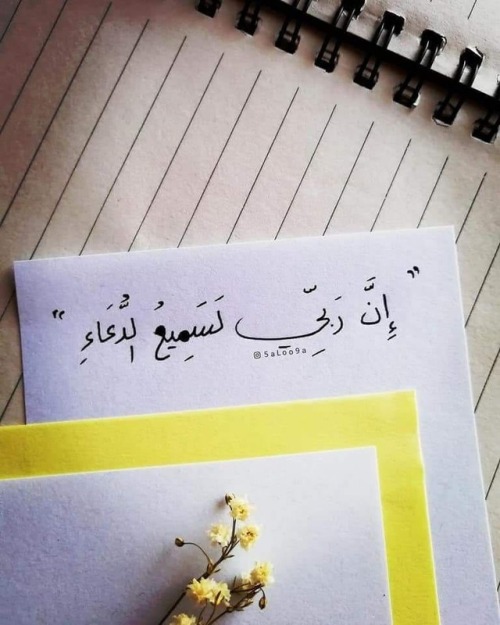 "إِنَّ رَبِّي لَسَمِيعُ الدُّعَاءِ"
SaLoo9a